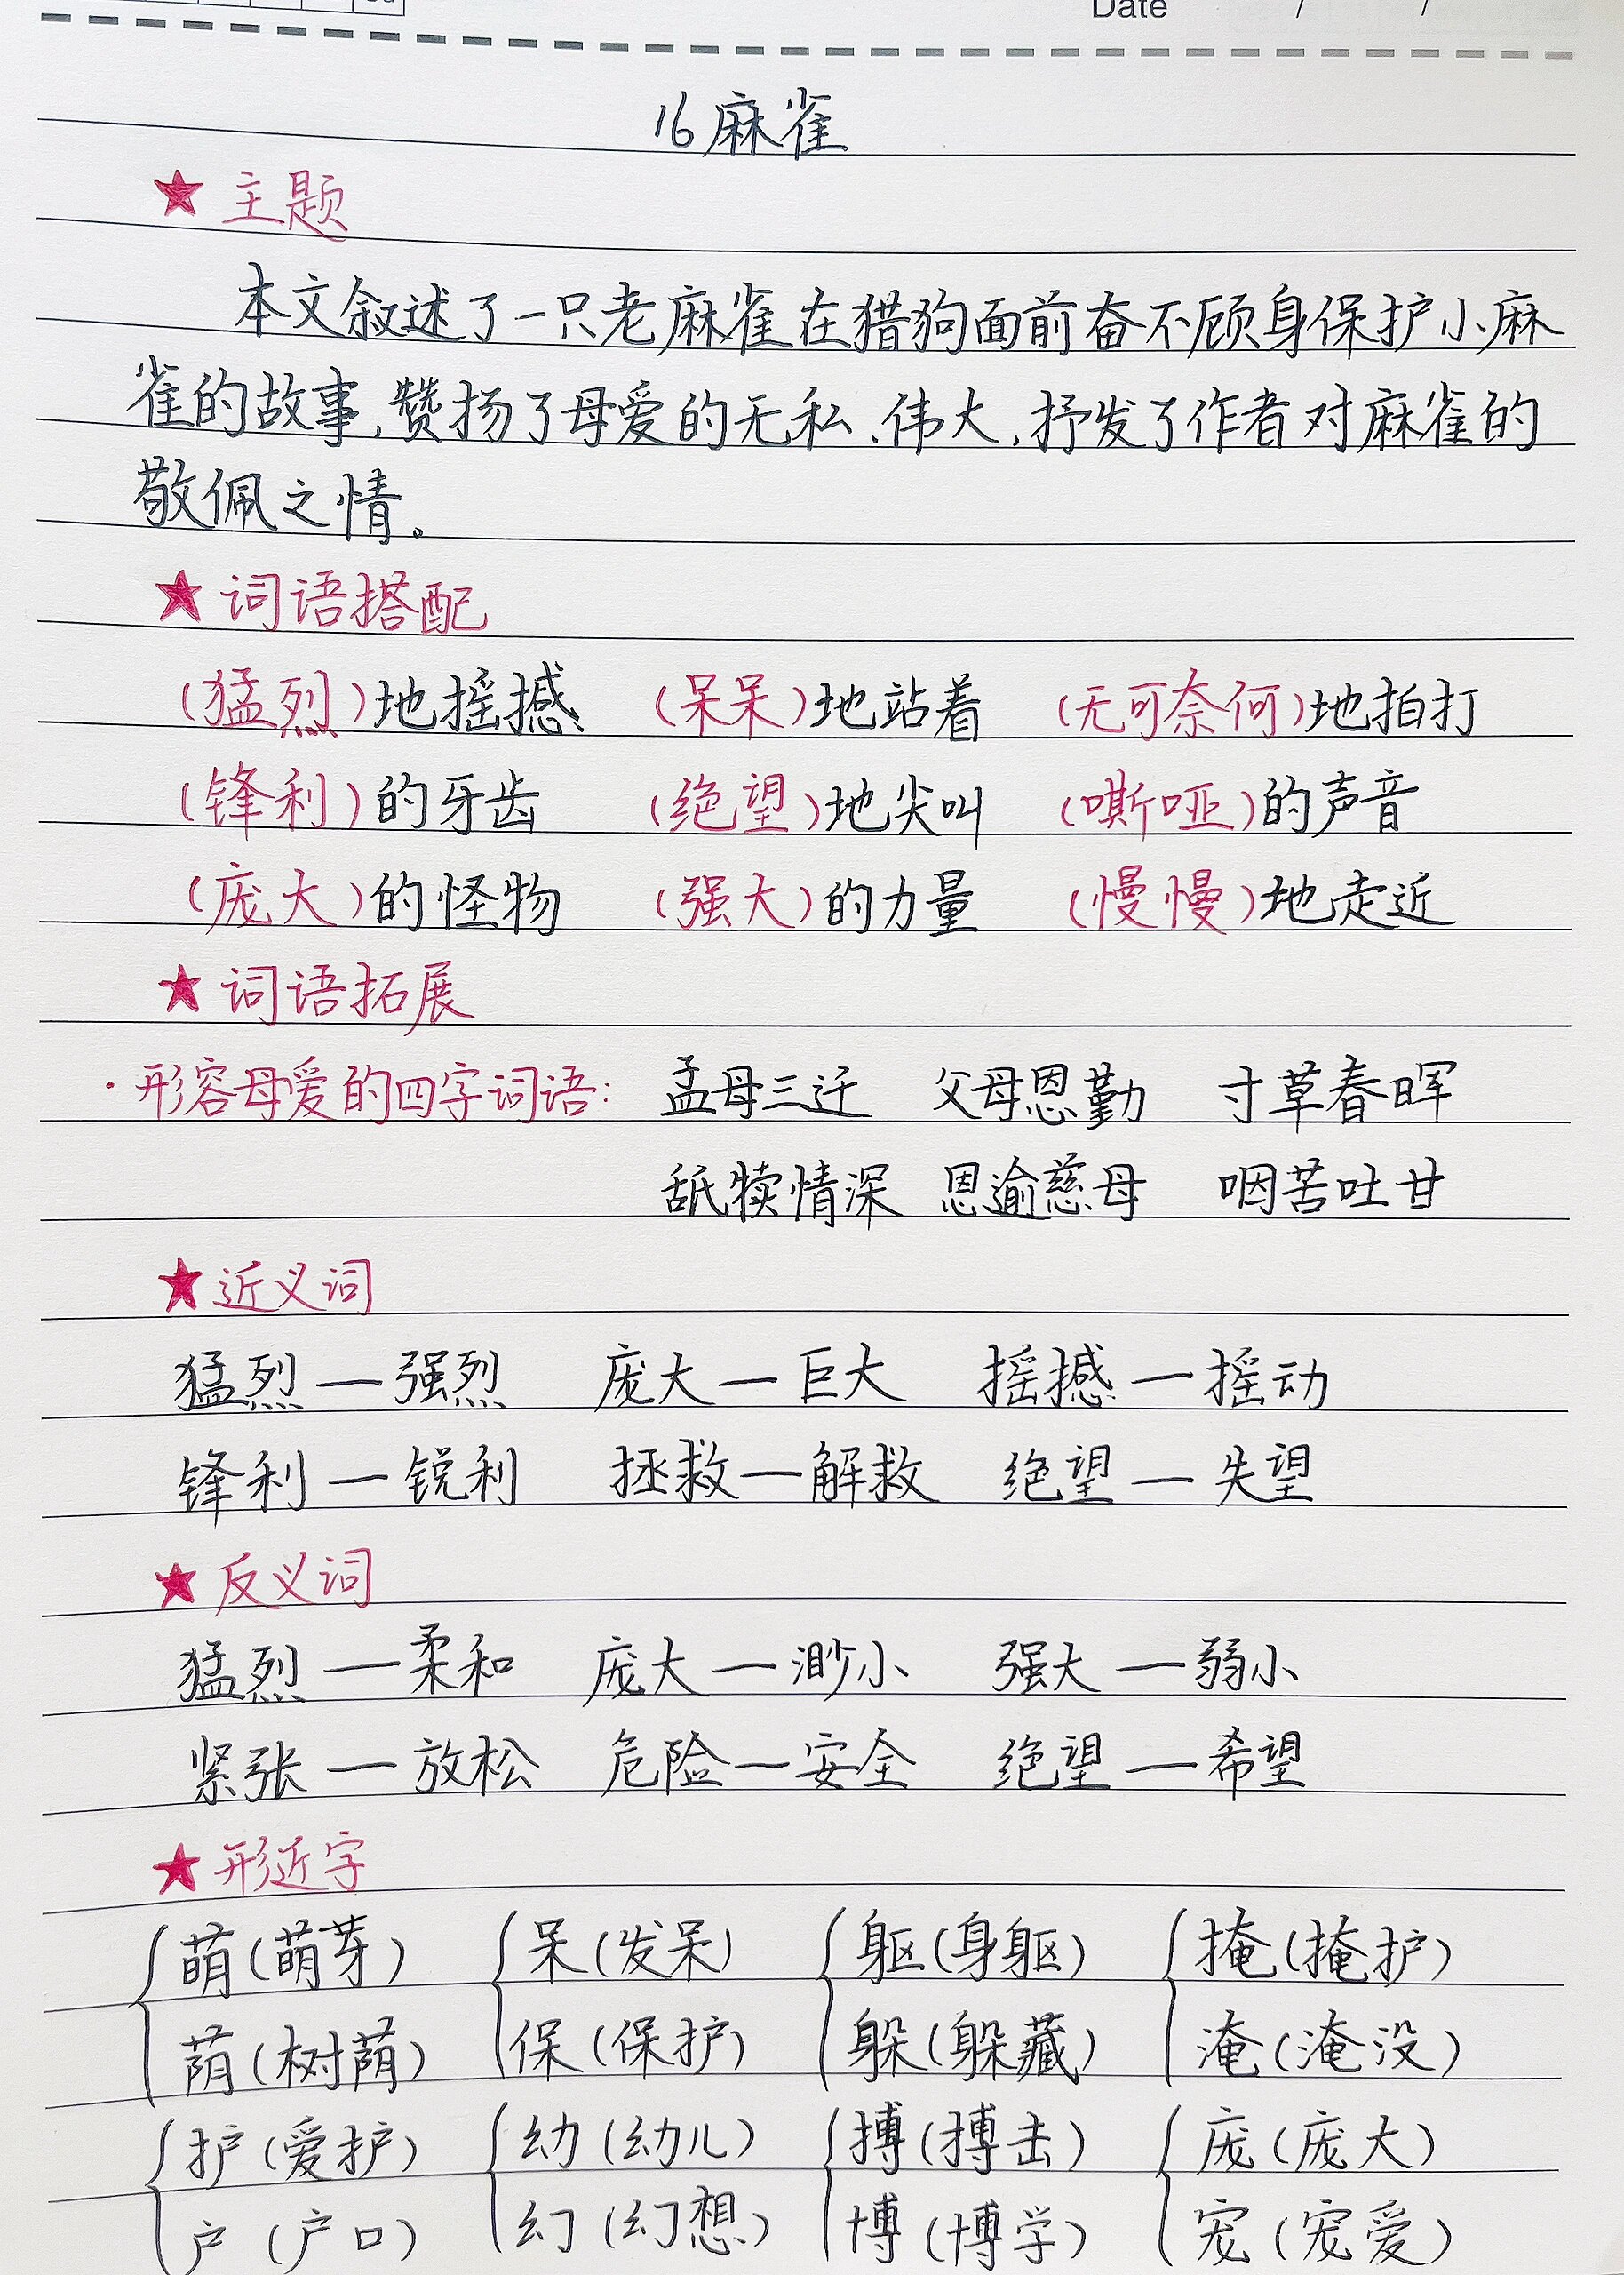 Date / /
16 麻雀
★ 主题
本文叙述了一只老麻雀在猎狗面前奋不顾身保护小麻
雀的故事,赞扬了母爱的无私、伟大,抒发了作者对麻雀的
敬佩之情。
★ 词语搭配
(猛烈)地摇撼 (呆呆)地站着 (无可奈何)地拍打
(锋利)的牙齿 (绝望)地尖叫 (嘶哑)的声音
(庞大)的怪物 (强大)的力量 (慢慢)地走近
★ 词语拓展
·形容母爱的四字词语: 孟母三迁 父母恩勤 寸草春晖
舐犊情深 恩逾慈母 咽苦吐甘
★ 近义词
猛烈—强烈 庞大—巨大 摇撼—摇动
锋利—锐利 拯救—解救 绝望—失望
★ 反义词
猛烈—柔和 庞大—渺小 强大—弱小
紧张—放松 危险—安全 绝望—希望
★ 形近字
萌(萌芽) 呆(发呆) 躯(身躯) 掩(掩护)
荫(树荫) 保(保护) 躲(躲藏) 淹(淹没)
护(爱护) 幼(幼儿) 搏(搏击) 庞(庞大)
户(户口) 幻(幻想) 博(博学) 宠(宠爱)